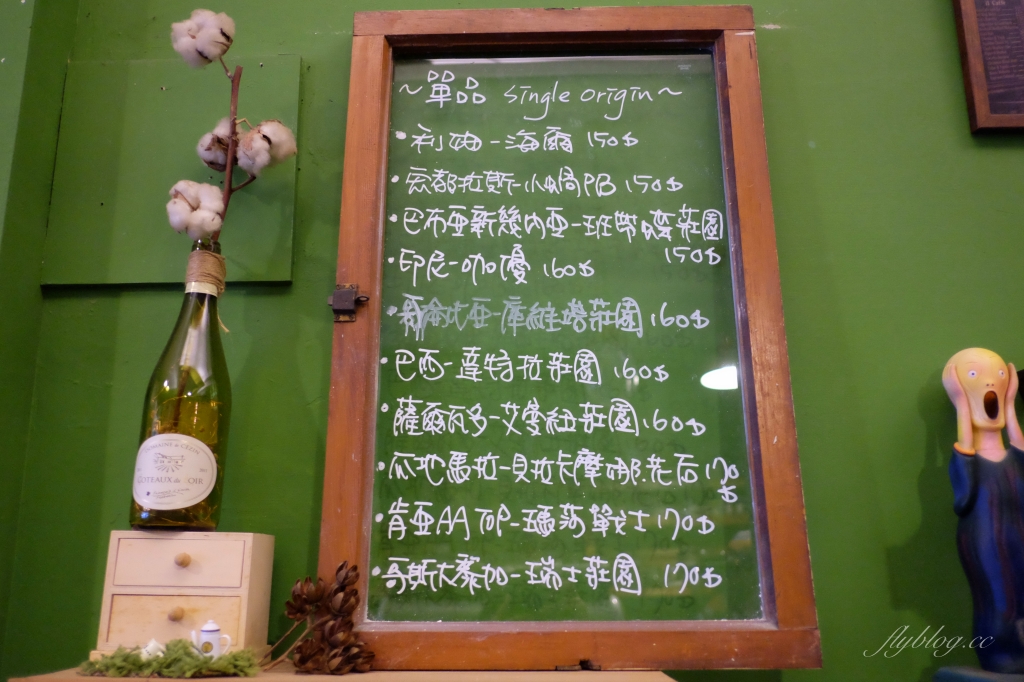 ~單品 single origin~
•利迪-海爾 150$
•宏都拉斯-小蝸PB 150$
•巴布亞新幾內亞-班帶變莊園
150$
•印尼-咖優 160$
•哥倫比亞-庫維塔莊園 160$
•巴西-達特拉莊園 160$
•薩爾瓦多-艾曼紐莊園 160$
•瓜地馬拉-貝拉卡摩娜.花后 170
$
•肯亞AA TOP-瑪莎戰士 170$
•哥斯大黎加-瑞士莊園 170$
COTEAUX du
flyblog.cc